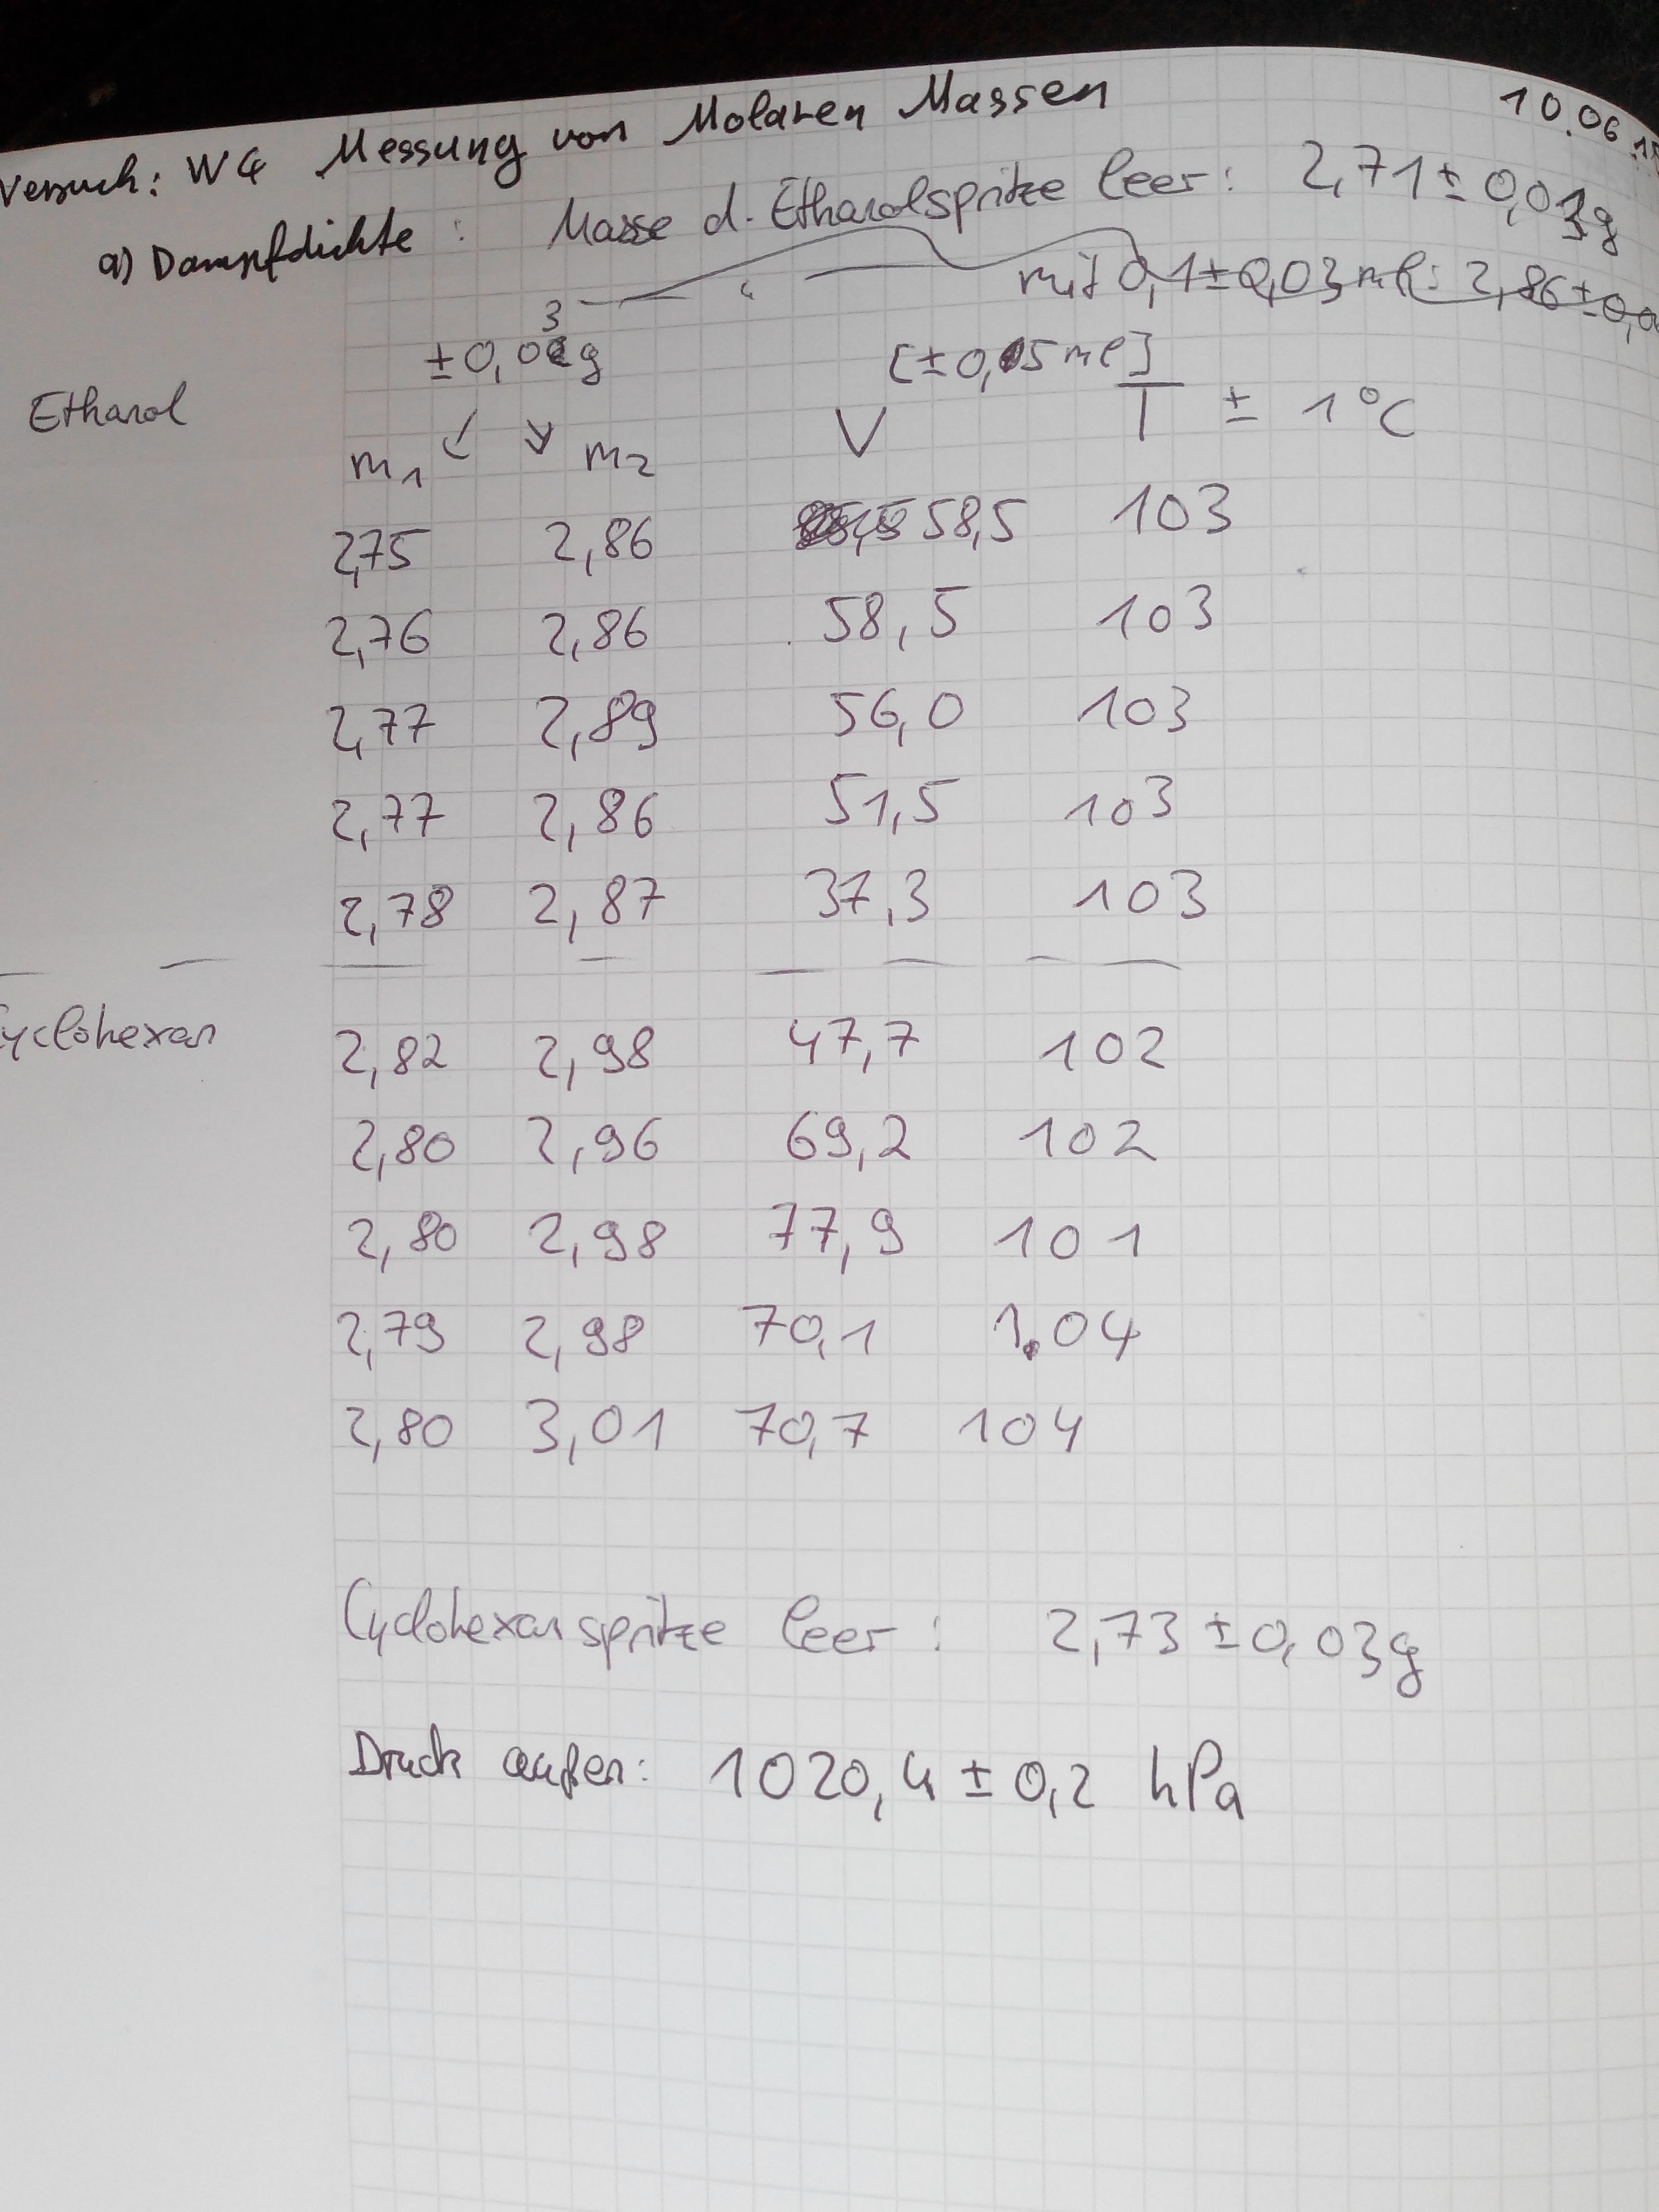 10.06.15
Versuch: W4 Messung von Molaren Massen
a) Dampfdichte: Masse d. Ethanolspritze leer: 2,71 ± 0,03g
mit 0,1 ± 0,03 ml: 2,86 ± 0,0
±0,03g [±0,5 ml]
Ethanol m1 m2 V T ± 1°C
2,75 2,86 58,5 103
2,76 2,86 58,5 103
2,77 2,89 56,0 103
2,77 2,86 51,5 103
2,78 2,87 37,3 103
Cyclohexan 2,82 2,98 47,7 102
2,80 2,96 69,2 102
2,80 2,98 77,9 101
2,79 2,98 70,1 104
2,80 3,01 70,7 104
Cyclohexanspritze leer: 2,73 ± 0,03g
Druck außen: 1020,4 ± 0,2 hPa